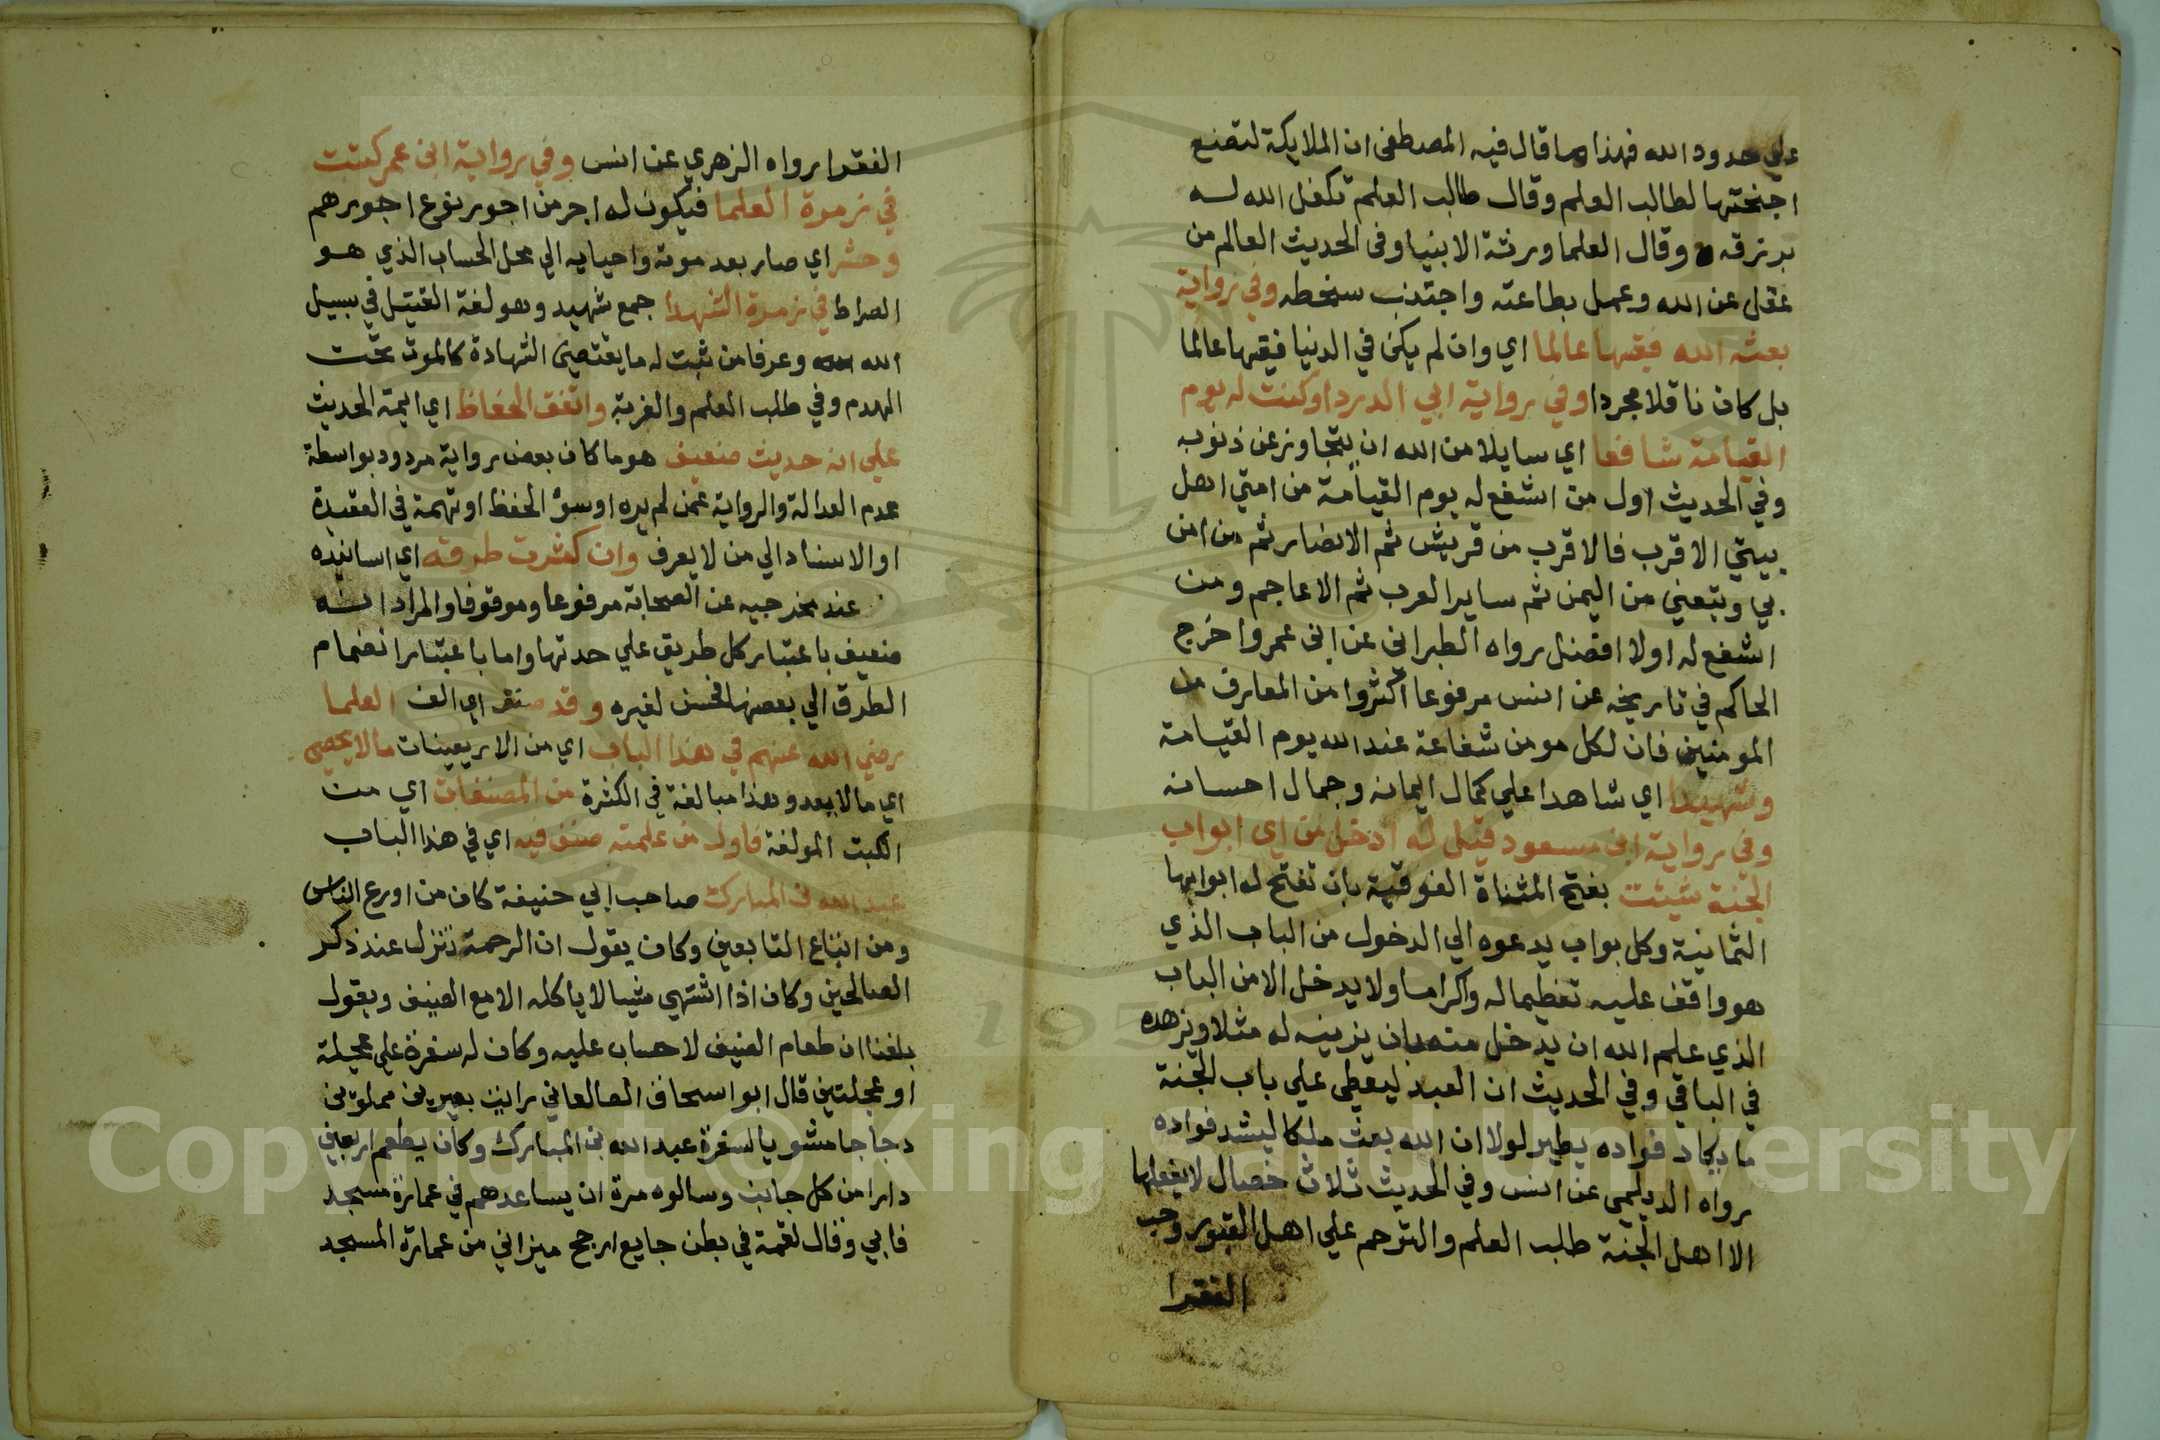 علي حدود الله فهذا وما قال فيه المصطفى ان الملايكة لتضع
اجنحتها لطالب العلم وقال طالب العلم تكفل الله له
برزقه وقال العلما ورثة الانبيا وفى الحديث العالم من
عقل عن الله وعمل بطاعته واجتنب سخطه وفي رواية
بعثه الله فقيها عالما اي وان لم يكن في الدنيا فقيها عالما
بل كان ناقلا مجردا وفي رواية ابي الدرداوكنت له يوم
القيامة شافعا اي سايلا من الله ان يتجاوز عن ذنوبه
وفي الحديث اول من اشفع له يوم القيامة من امتي اهل
بيتي الاقرب فالاقرب من قريش ثم الانصار ثم من امن
بي وتبعني من اليمن ثم ساير العرب ثم الاعاجم ومن
اشفع له اولا افضل رواه الطبرانى عن ابن عمر واخرج
الحاكم في تاريخه عن انس مرفوعا اكثروا من المعارف من
المومنين فان لكل مومن شفاعة عند الله يوم القيامة
وشهيدا اي شاهدا علي كمال ايمانه وجمال احسانه
وفي رواية ابن مسعود قيل له ادخل من اي ابواب
الجنة شيئت بفتح المثناة الفوقية بان تفتح له ابوابها
الثمانية وكل بواب يدعوه الي الدخول من الباب الذي
هو واقف عليه تعظيما له واكراما ولا يدخل الا من الباب
الذي علم الله ان يدخل منه بان يزينه له مثلا ويزهده
في الباقي وفي الحديث ان العبد ليعطى علي باب الجنة
ما يكاد فواده يطير لولا ان الله بعث ملكا ليشد فواده
رواه الديلمى عن انس وفي الحديث ثلاث خصال لا يفعلها
الا اهل الجنة طلب العلم والترحم علي اهل القبور وحب
الفقرا
الفقرا رواه الزهري عن انس وفي رواية ابن عمر كتت
في زمرة العلما فيكون له اجر من اجور نوع اجورهم
وحشر اي صار بعد موته واحيايه الي محل الحساب الذي هو
الصراط في زمرة الشهدا جمع شهيد وهو لغة القتيل في سبيل
الله وعرفا من ثبت له ما يقتضى الشهادة كالموت تحت
الهدم وفي طلب العلم والغربة واتفق الحفاظ اي ايمة الحديث
علي انه حديث ضعيف هو ما كان بعض رواية مردود بواسطة
عدم العدالة والرواية عمن لم يره او سوء الحفظ او تهمة في العقيدة
او الاسناد الي من لا يعرف وان كثرت طرقه اي اسانيده
عند مخرجيه عن الصحابة مرفوعا وموقوفا والمراد انه
ضعيف باعتبار كل طريق علي حدتها واما باعتبار انضمام
الطرق الي بعضها فحسن لغيره وقد صنف اي الف العلما
رضي الله عنهم في هذا الباب اي من الاربعينات ما لا يحصي
اي ما لا يعد وهذا مبالغة في الكثرة من المصنفات اي من
الكتب المولفة فاول من علمته صنف فيه اي في هذا الباب
عبد الله بن المبارك صاحب ابي حنيفة كان من اورع الناس
ومن اتباع التابعين وكان يقول ان الرحمة تنزل عند ذكر
الصالحين وكان اذا اشتهي شيا لا ياكله الا مع الضيف ويقول
بلغنا ان طعام الضيف لا حساب عليه وكان له سفرة علي عجيلة
او عجلتين قال ابو اسحاق الطالقاني رايت بعيرين مملوين
دجاجا مشويا لسفرة عبد الله بن المبارك وكان يطعم اربعين
دارا من كل جانب وسالوه مرة ان يساعدهم في عمارة مسجد
فابي وقال لقمة في بطن جايع ارجح ميزاني من عمارة المسجد
Copyright © King Saud University